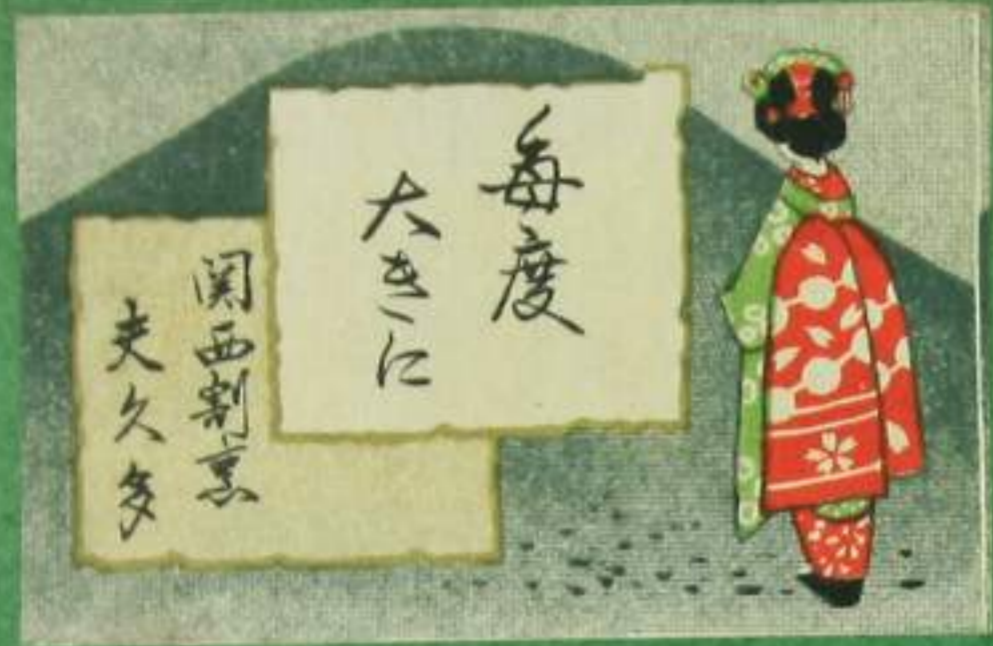 毎度
大きに
関西割烹
夫久多